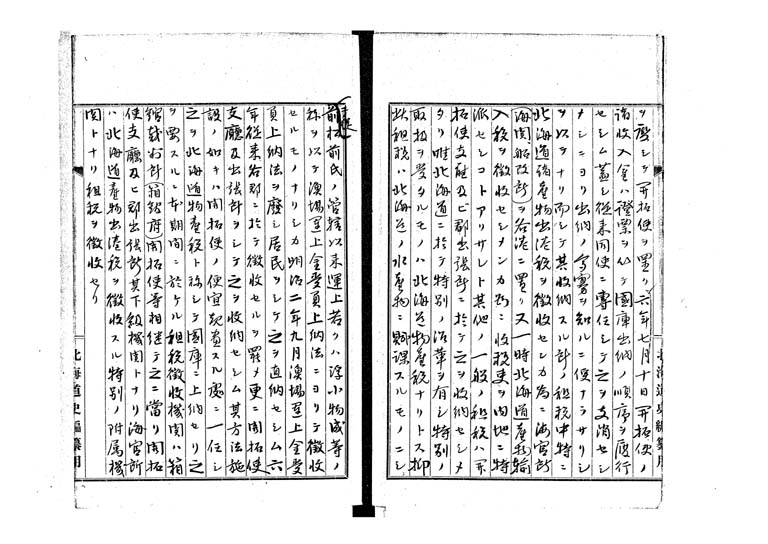 ヲ廃シテ開拓使ヲ置ク六年七月十日開拓使ノ
諸収入金ハ證票ヲ以テ國庫出納ノ順序ヲ履行
セシム蓋シ從来同使ニ専任シテ之ヲ支消セシ
メシニヨリ出納ノ實ヲ知ルニ便ナラサリシ
ヲ以テナリ而シテ其収納スル計ノ租税中特ニ
北海道諸産物出港税ヲ徴収センカ為ニ海官所
(海関船改所)ヲ各港ニ置ク又一時北海道産物輸
入税ヲ徴収セシメンカ為ニ収税吏ヲ内地ニ特
派セシコトアリサレト其他ノ一般ノ租税ハ開
拓使支廳及ヒ郡出張所ニ於テ之ヲ収納セシメ
タリ唯北海道ニ於テ特別ノ沿革ヲ有シ特別ノ
取扱ヲ受タルモノハ北海道物産税ナリトス抑
此租税ハ北海道ノ水産物ニ賦課スルモノニシ
前松前氏ノ管轄以来運上若クハ
称ヲ以テ漁場運上金受負上納法ニヨリテ徴収
セルモノナリシカ明治二年九月漁場運上金受
負上納法ヲ廃シ居民ヲシテ之ヲ直納セシム六
年從来各郡ニ於テ徴収セルヲ罷メ更ニ開拓使
支廳及出張所ヲシテ之ヲ収納セシム其方法施
設ノ如キハ開拓使ノ便宜取斗スル處ニ一任シ
之ヲ北海道物産税ト稱シテ國庫ニ上納セリ之
ヲ要スルニ本期間ニ於ケル租税徴収機関ハ箱
館裁判所箱館府開拓使等相継テ之ニ當リ開拓
使支廳及ヒ郡出張所其下級機関トナリ海官所
ハ北海道産物出港税ヲ徴収スル特別ノ附属機
関トナリ租税ヲ徴収セリ
北海道史編纂用